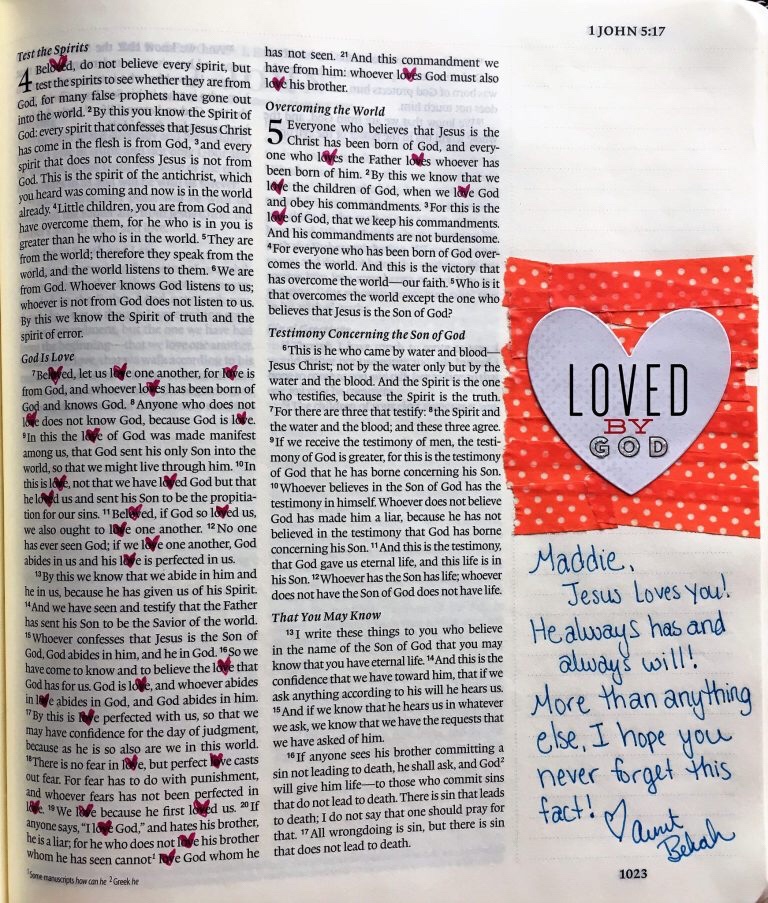 1 JOHN 5:17
Test the Spirits
4 Beloved, do not believe every spirit, but
test the spirits to see whether they are from
God, for many false prophets have gone out
into the world. 2 By this you know the Spirit of
God: every spirit that confesses that Jesus Christ
has come in the flesh is from God, 3 and every
spirit that does not confess Jesus is not from
God. This is the spirit of the antichrist, which
you heard was coming and now is in the world
already. 4 Little children, you are from God and
have overcome them, for he who is in you is
greater than he who is in the world. 5 They are
from the world; therefore they speak from the
world, and the world listens to them. 6 We are
from God. Whoever knows God listens to us;
whoever is not from God does not listen to us.
By this we know the Spirit of truth and the
spirit of error.
God Is Love
7 Beloved, let us love one another, for love is
from God, and whoever loves has been born of
God and knows God. 8 Anyone who does not
love does not know God, because God is love.
9 In this the love of God was made manifest
among us, that God sent his only Son into the
world, so that we might live through him. 10 In
this is love, not that we have loved God but that
he loved us and sent his Son to be the propitia-
tion for our sins. 11 Beloved, if God so loved us,
we also ought to love one another. 12 No one
has ever seen God; if we love one another, God
abides in us and his love is perfected in us.
13 By this we know that we abide in him and
he in us, because he has given us of his Spirit.
14 And we have seen and testify that the Father
has sent his Son to be the Savior of the world.
15 Whoever confesses that Jesus is the Son of
God, God abides in him, and he in God. 16 So we
have come to know and to believe the love that
God has for us. God is love, and whoever abides
in love abides in God, and God abides in him.
17 By this is love perfected with us, so that we
may have confidence for the day of judgment,
because as he is so also are we in this world.
18 There is no fear in love, but perfect love casts
out fear. For fear has to do with punishment,
and whoever fears has not been perfected in
love. 19 We love because he first loved us. 20 If
anyone says, "I love God," and hates his brother,
he is a liar; for he who does not love his brother
whom he has seen cannot 1 love God whom he
1 Some manuscripts how can he 2 Greek he
has not seen. 21 And this commandment we
have from him: whoever loves God must also
love his brother.
Overcoming the World
5 Everyone who believes that Jesus is the
Christ has been born of God, and every-
one who loves the Father loves whoever has
been born of him. 2 By this we know that we
love the children of God, when we love God
and obey his commandments. 3 For this is the
love of God, that we keep his commandments.
And his commandments are not burdensome.
4 For everyone who has been born of God over-
comes the world. And this is the victory that
has overcome the world—our faith. 5 Who is it
that overcomes the world except the one who
believes that Jesus is the Son of God?
Testimony Concerning the Son of God
6 This is he who came by water and blood—
Jesus Christ; not by the water only but by the
water and the blood. And the Spirit is the one
who testifies, because the Spirit is the truth.
7 For there are three that testify: 8 the Spirit and
the water and the blood; and these three agree.
9 If we receive the testimony of men, the testi-
mony of God is greater, for this is the testimony
of God that he has borne concerning his Son.
10 Whoever believes in the Son of God has the
testimony in himself. Whoever does not believe
God has made him a liar, because he has not
believed in the testimony that God has borne
concerning his Son. 11 And this is the testimony,
that God gave us eternal life, and this life is in
his Son. 12 Whoever has the Son has life; whoever
does not have the Son of God does not have life.
That You May Know
13 I write these things to you who believe
in the name of the Son of God that you may
know that you have eternal life. 14 And this is the
confidence that we have toward him, that if we
ask anything according to his will he hears us.
15 And if we know that he hears us in whatever
we ask, we know that we have the requests that
we have asked of him.
16 If anyone sees his brother committing a
sin not leading to death, he shall ask, and God 2
will give him life—to those who commit sins
that do not lead to death. There is sin that leads
to death; I do not say that one should pray for
that. 17 All wrongdoing is sin, but there is sin
that does not lead to death.
LOVED
BY
GOD
Maddie,
Jesus Loves you!
He always has and
always will!
More than anything
else, I hope you
never forget this
fact!
Aunt
Bekah
1023